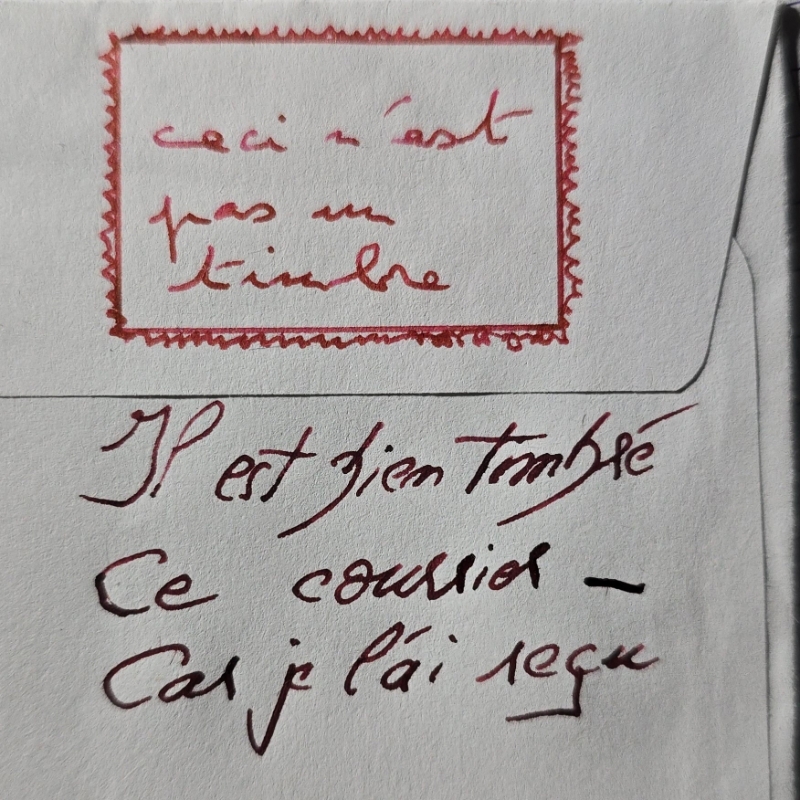 ceci n'est
pas un
timbre
Il est bien timbré
Ce courrier –
Car je l'ai reçu